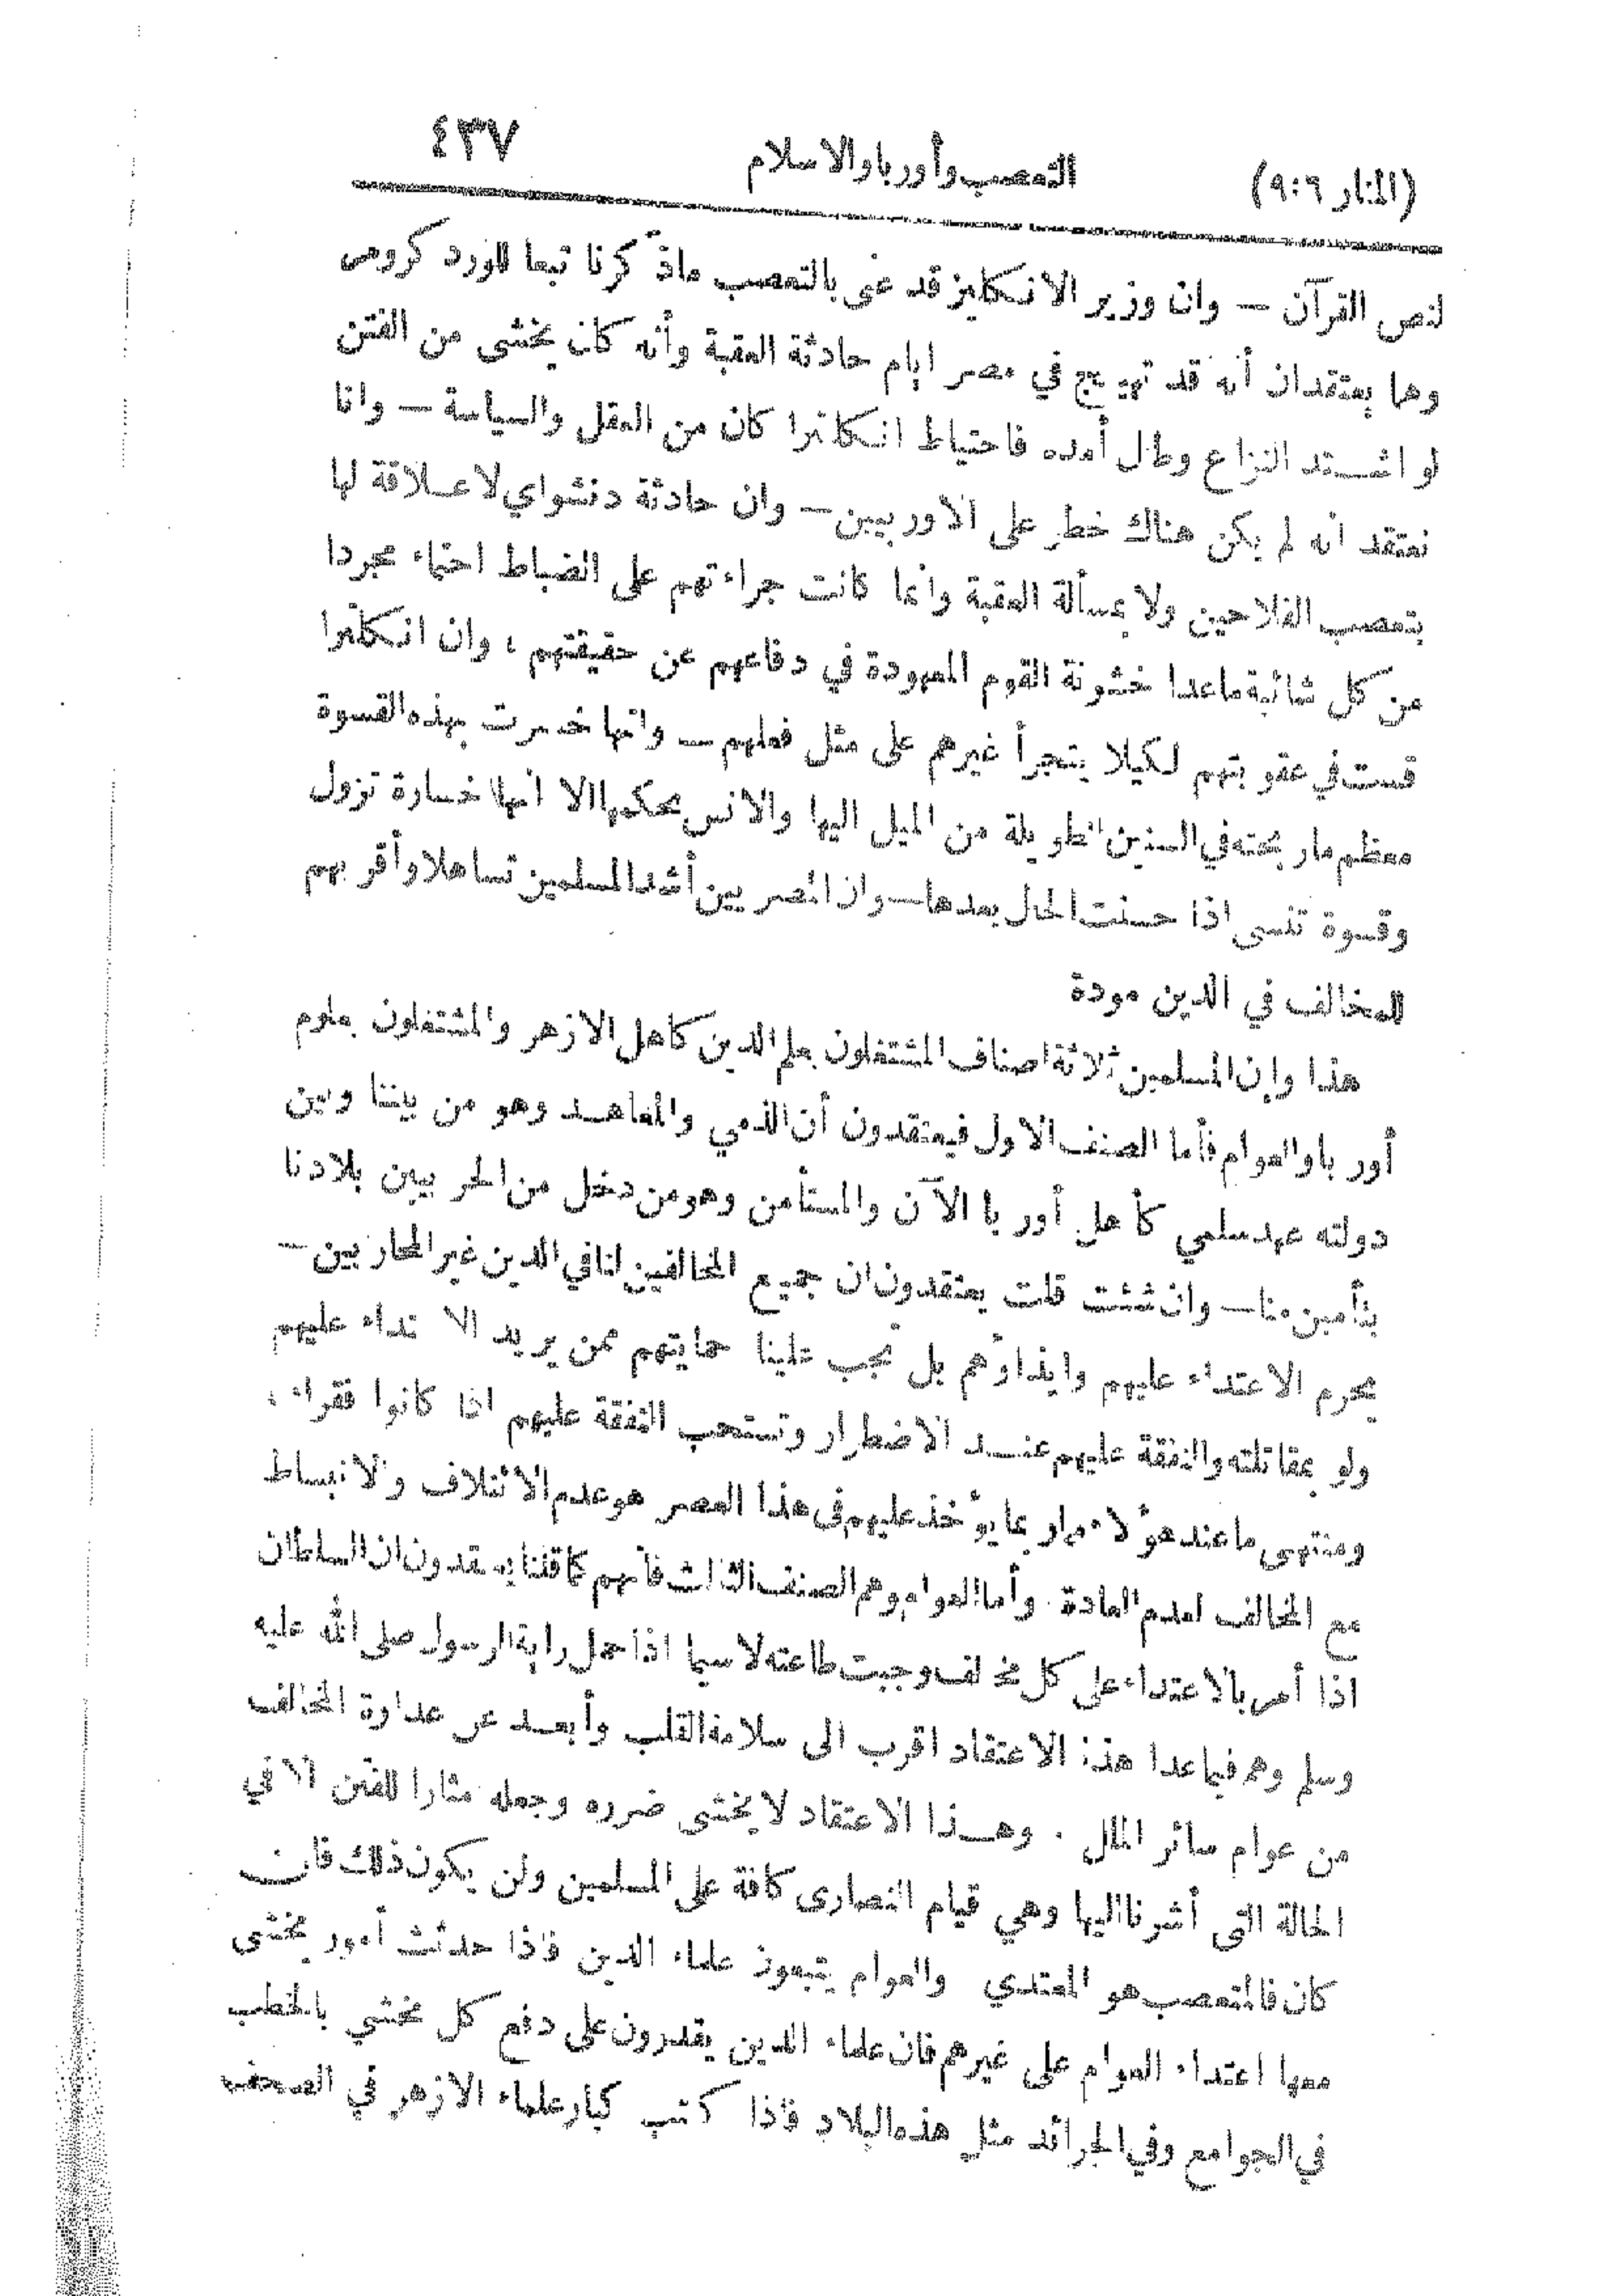 (المنار ٦:٩) التعصب وأوربا والاسلام ٤٣٧
لنص القرآن – وان وزير الانكليز قد عنى بالتعصب ماذكرنا تبعا للورد كرومر
وهما يعتقدان أنه قد تهيج في مصر ايام حادثة العقبة وأنه كان يخشى من الفتن
لو اشتد النزاع وطال أمده فاحتياط انكلترا كان من العقل والسياسة – وانا
نعتقد انه لم يكن هناك خطر على الاوربيين – وان حادثة دنشواي لا علاقة لها
بتعصب الفلاحين ولا بمسألة العقبة وانما كانت جراءتهم على الضباط احتماء مجردا
من كل شائبة ماعدا خشونة القوم المعهودة في دفاعهم عن حقيقتهم ، وان انكلترا
قست في عقوبتهم لكيلا يتجرأ غيرهم على مثل فعلهم – وانها خسرت بهذه القسوة
معظم ماربحته في السنين الطويلة من الميل اليها والانس بحكمها الا انها خسارة تزول
وقسوة تنسى اذا حسنت الحال بعدها – وان المصريين أشد المسلمين تساهلا وأقربهم
للمخالف في الدين مودة
هذا وإن المسلمين ثلاثة اصناف المشتغلون بعلم الدين كاهل الازهر والمشتغلون بعلوم
أوربا والعوام فأما الصنف الاول فيعتقدون أن الذمي والمعاهد وهو من بيننا وبين
دولته عهد سلمي كأهل أوربا الآن والمستأمن وهو من دخل من الحربيين بلادنا
بتأمين منا – وان شئت قلت يعتقدون ان جميع المخالفين لنا في الدين غير المحاربين –
يحرم الاعتداء عليهم وايذاؤهم بل يجب علينا حمايتهم ممن يريد الاعتداء عليهم
ولو بمقاتلته والنفقة عليهم عند الاضطرار وتستحب النفقة عليهم اذا كانوا فقراء ،
ومنتهى ما عند هؤلاء مما يؤخذ عليهم في هذا العصر هو عدم الائتلاف والانبساط
مع المخالف لعدم العادة . وأما العوام وهم الصنف الثالث فانهم كما قلنا يعتقدون ان السلطان
اذا أمر بالاعتداء على كل مخالف وجبت طاعته لاسيما اذا حمل راية الرسول صلى الله عليه
وسلم وهم فيما عدا هذا الاعتقاد اقرب الى سلامة القلب وأبعد عن عداوة المخالف
من عوام سائر الملل . وهذا الاعتقاد لا يخشى ضرره وجعله مثارا للفتن الا في
الحالة التي أشرنا اليها وهي قيام النصارى كافة على المسلمين ولن يكون ذلك فان
كان فالمتعصب هو المعتدي والعوام يتبعون علماء الدين فاذا حدثت أمور يخشى
معها اعتداء العوام على غيرهم فان علماء الدين يقدرون على دفع كل مخشي بالخطب
في الجوامع وفي الجرائد مثل هذه البلاد فاذا كتب كبار علماء الازهر في الصحف